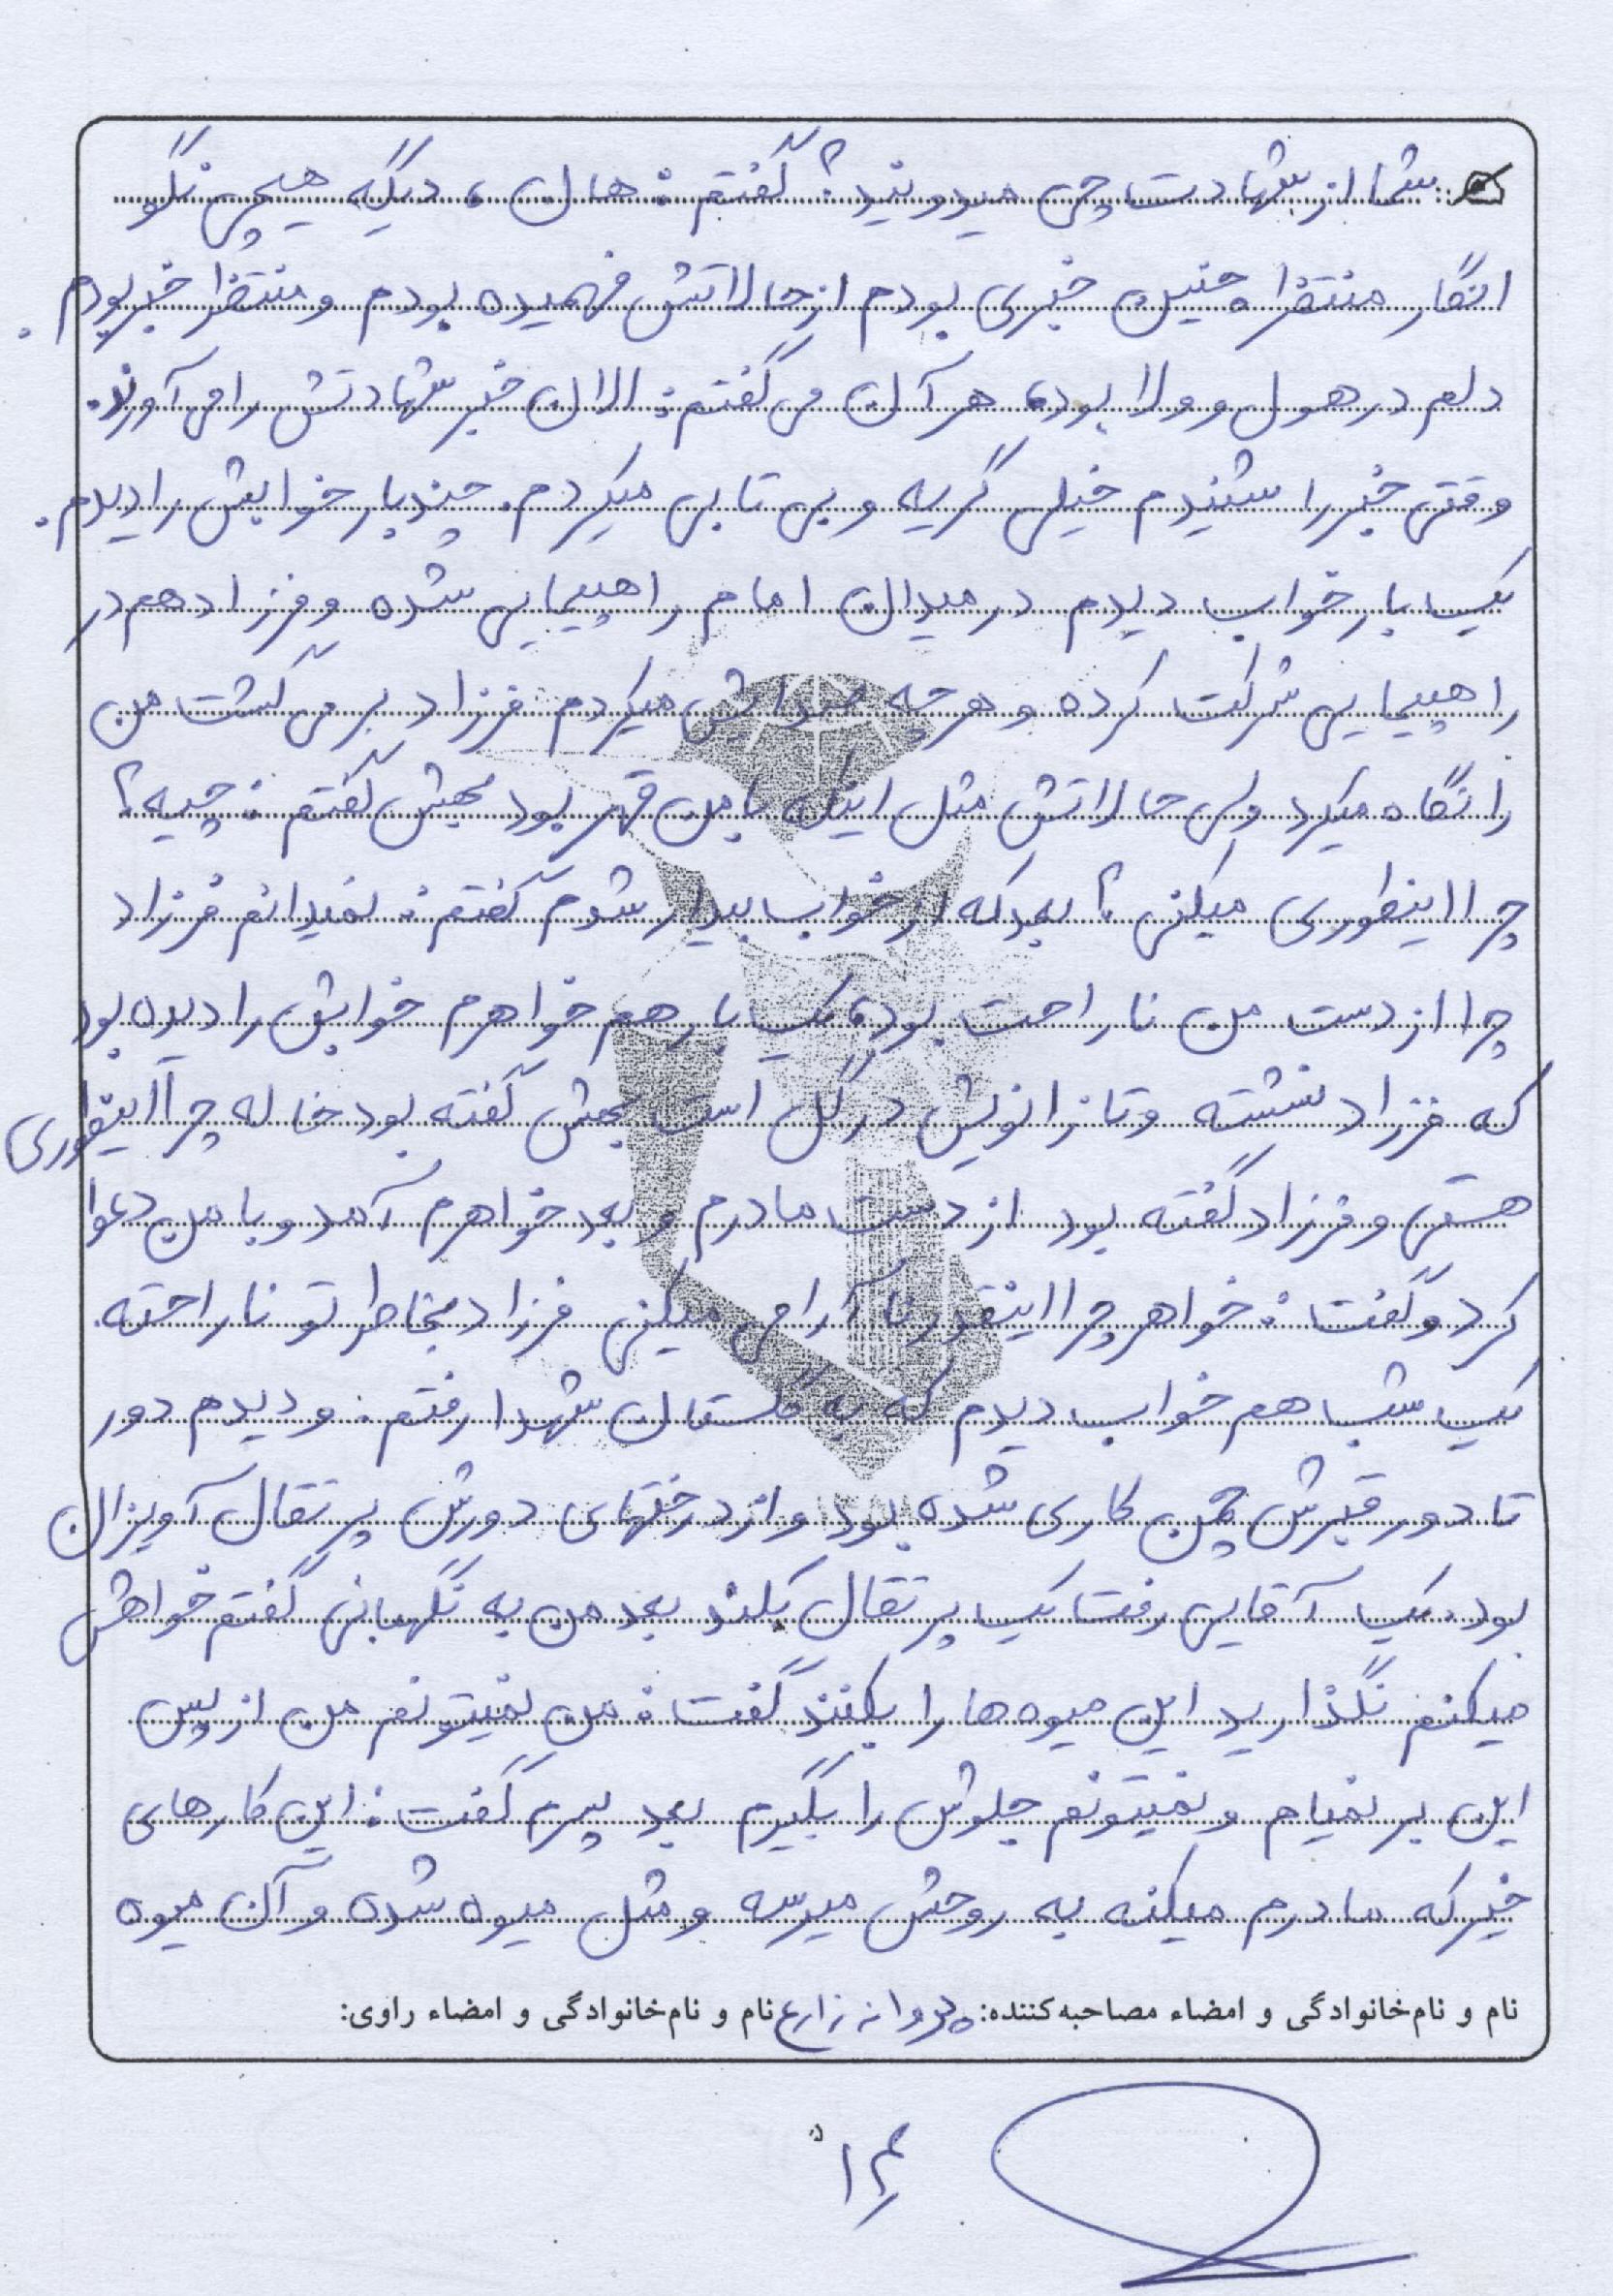 شما از شهادت چی میدونید؟ گفتم: هان، دیگه هیچی نگو
انگار منتظر چنین خبری بودم از حالاتش فهمیده بودم و منتظر خبر بودم.
دلم در هول و ولا بود، هر آن می گفتم: الاان خبر شهادتش را می آورند.
وقتی خبر را شنیدم خیلی گریه و بی تابی میکردم. چند بار خوابش را دیدم.
یک بار خواب دیدم در میدان امام راهپیمایی شده و فرزاد هم در
راهپیمایی شرکت کرده و هر چه صدایش میکردم فرزاد بر می گشت من
را نگاه میکرد ولی حالاتش مثل اینکه با من قهر بود بهش گفتم: چیه؟
چرا اینطوری میکنی؟ بعد که از خواب بیدار شدم گفتم: نمیدانم فرزاد
چرا از دست من ناراحت بود، یک بار هم خواهرم خوابش را دیده بود
که فرزاد نشسته و تا زانویش در گل است بهش گفته بود خاله چرا اینطوری
هستی و فرزاد گفته بود از دست مادرم و بعد خواهرم آمد و با من دعوا
کرد و گفت: خواهر چرا اینقدر نا آرامی میکنی فرزاد بخاطر تو ناراحته.
یک شب هم خواب دیدم که به گلستان شهدا رفتم. و دیدم دور
تا دور قبرش چمن کاری شده بود و از درختهای دورش پرتقال آویزان
بود. یک آقایی رفت یک پرتقال بکند بعد من به نگهبانی گفتم خواهش
میکنم نگذارید این میوه ها را بکنند گفت: من نمیتونم من از پس
این بر نمیام و نمیتونم جلوش را بگیرم بعد پسرم گفت: این کارهای
خیر که مادرم میکنه به روحش میرسه و مثل میوه شده و آن میوه
نام و نام‌خانوادگی و امضاء مصاحبه‌کننده: پروانه زارع نام و نام‌خانوادگی و امضاء راوی: